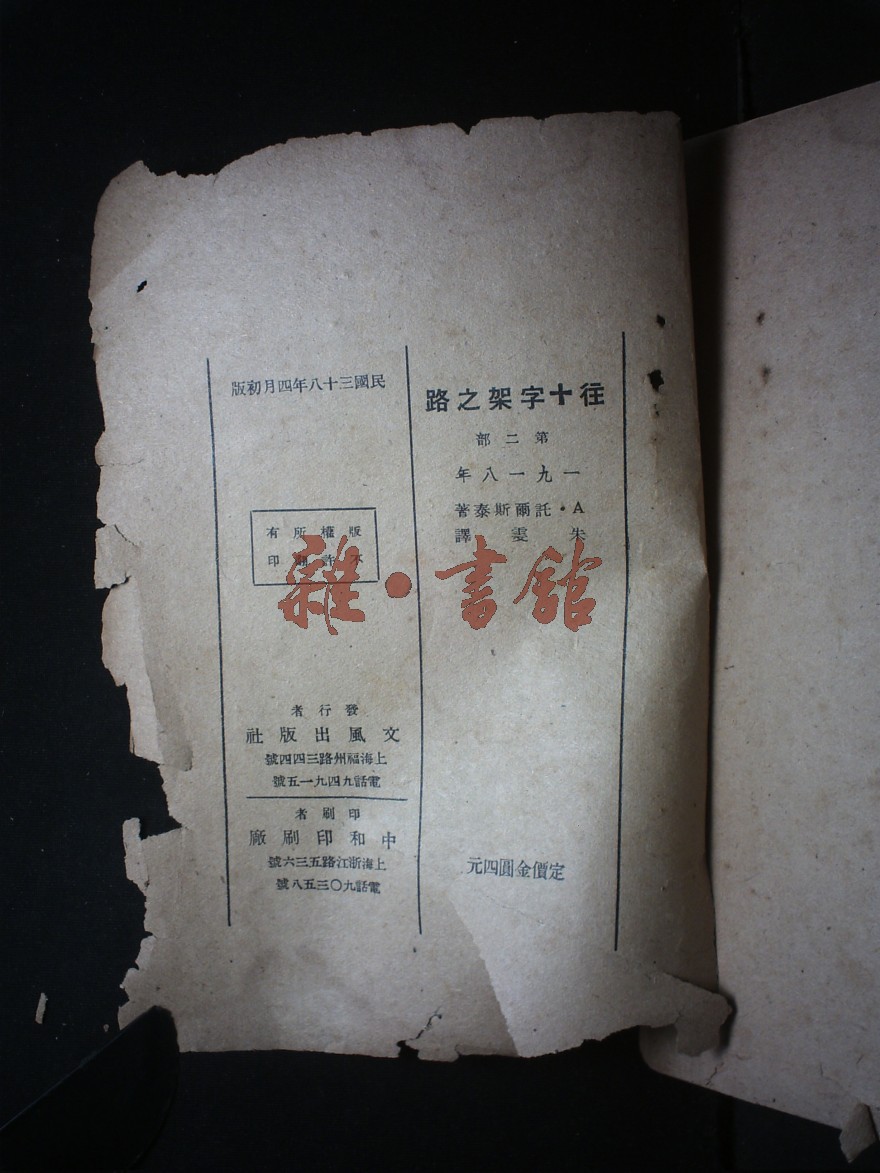 往十字架之路
第二部
一九一八年
A・託爾斯泰著
朱雯譯
定價金圓四元
民國三十八年四月初版
版權所有
不許翻印
發行者
文風出版社
上海福州路三四四號
電話九四九一五號
印刷者
中和印刷廠
上海浙江路五三六號
電話九〇三五八號
雜・書館